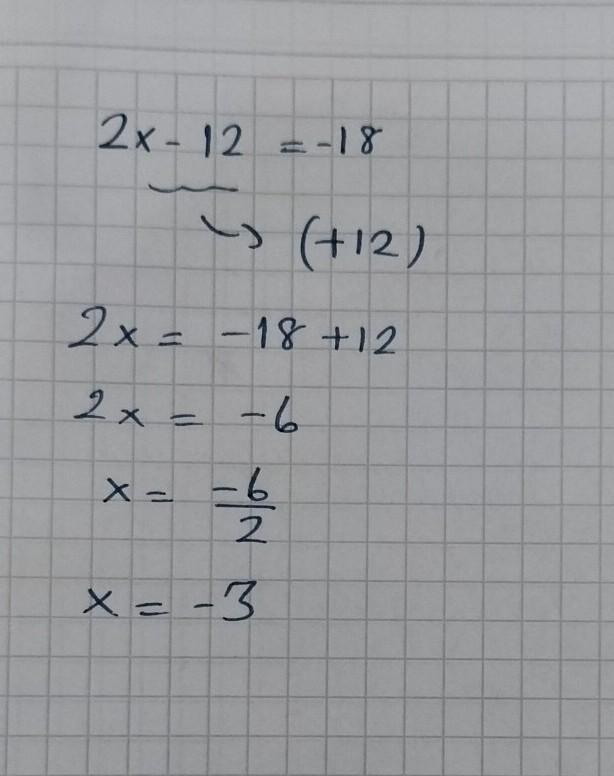 2x - 12 = -18
(+12)
2x = -18 + 12
2x = -6
x = -6/2
x = -3